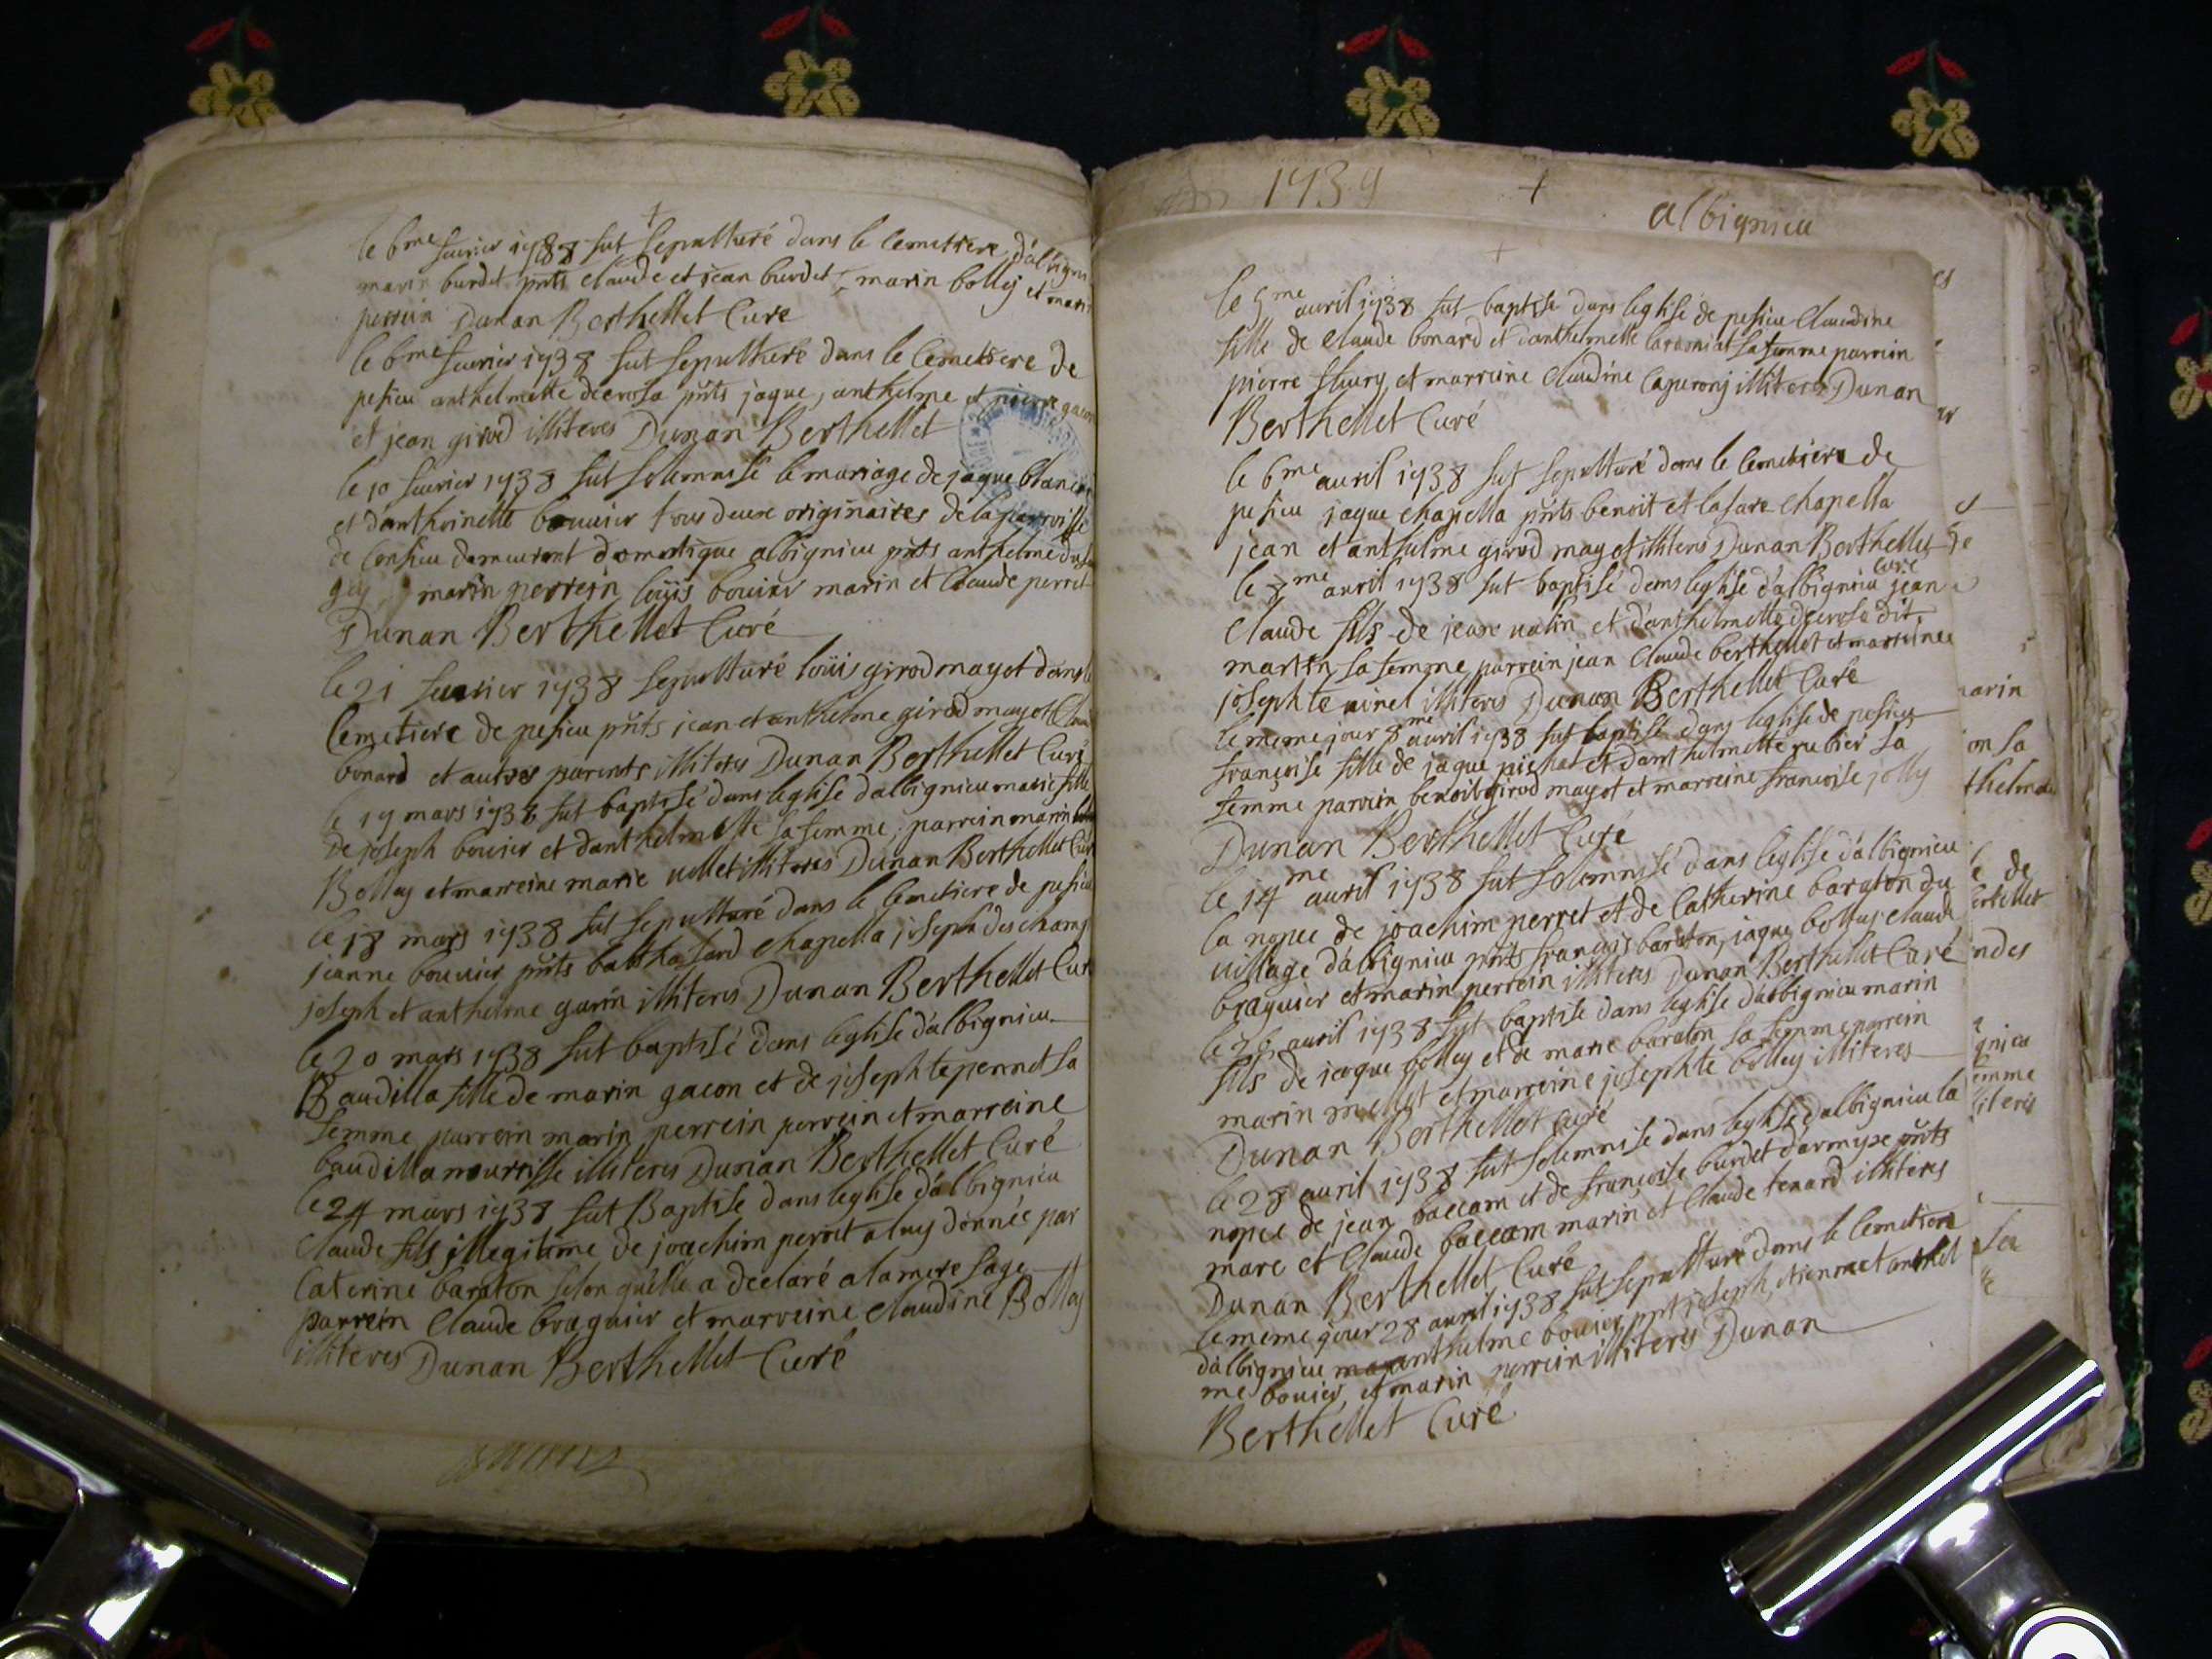 le 6me fevrier 1738 fut sepulturé dans le Cemetiere d'albigni
marin burdet pnts claude et jean burdet, marin bolley et mari
perrein Dunan Berthellet Curé
le 6me fevrier 1738 fut sepulturé dans le Cemetiere de
pesieu anthelmette decrosa pnts jaque, anthelme et pierre gacon
et jean girod illiteres Dunan Berthellet
le 10 fevrier 1738 fut solemnisé le mariage de jaque
et d'anthoinette bouvier tous deux originaires de la parroisse
de Consieu demeurant domestique albignieu pnts anthelme
marin perrein, loüis bouvier marin et Claude perret
Dunan Berthellet Curé
le 21 fevrier 1738 sepulturé loüis girod mayot dans l
Cemetiere de pesieu pnts jean et anthelme girod mayot
bonard et autres parents illiteres Dunan Berthellet Curé
le 19 mars 1738 fut baptisé dans leglise dalbignieu marie fille
de joseph bouvier et danthelmette sa femme, parrein marin
Bolley et marreine marie illiteres Dunan Berthellet Curé
le 18 mars 1738 fut sepulturé dans le Cemetiere de pesieu
jeanne bouvier pnts balthasard Chapella joseph deschamp
joseph et anthelme garin illiteres Dunan Berthellet Cur
le 20 mars 1738 fut baptisé dans leglise d'albignieu
Baudilla fille de marin gacon et de josephte pennet sa
femme parrein marin perrein perrein et marreine
baudilla nourrisse illiteres Dunan Berthellet Curé
le 24 mars 1738 fut Baptise dans leglise d'albignieu
Claude fils illegitime de joachim perret a luy donnée par
Caterine baraton selon quelle a declaré a la mere sage
parrein Claude braguier et marreine Claudine Bolley
illiteres Dunan Berthellet Curé
1739
albignieu
le 5me avril 1738 fut baptise dans leglise de pesieu Claudine
fille de Claude bonard et danthelmette sa femme parrein
pierre fleury et marreine Claudine illiteres Dunan
Berthellet Curé
le 6me avril 1738 fut sepulturé dans le Cemetiere de
pesieu jaque chapella pnts benoit et lasare chapella
jean et anthelme girod mayot illiteres Dunan Berthellet
Curé
le 8me avril 1738 fut baptisé dans leglise d'albignieu jean
Claude fils de jean valin et d'anthelmette decrosa dit
martin sa femme parrein jean Claude berthellet et marreine
josephte illiteres Dunan Berthellet Curé
le meme jour 8me avril 1738 fut baptisé dans leglise de pesieu
françoise fille de jaque pichat et danthelmette rubier sa
femme parrein benoit girod mayot et marreine francoise jolly
Dunan Berthellet Curé
le 14me avril 1738 fut solemnisé dans leglise d'albignieu
la nopce de joachim perret et de Catherine baraton du
village d'albignieu pnts françois baraton, jaque bolley Claude
braguier et marin perrein illiteres Dunan Berthellet Curé
le 26 avril 1738 fut baptise dans leglise d'albignieu marin
fils de jacque bolley et de marie baraton sa femme parrein
marin mellet et marreine josephte bolley illiteres
Dunan Berthellet curé
le 28 avril 1738 fut solemnise dans leglise d'albignieu la
nopce de jean baccam et de françoise burdet darmyse pnts
marc et Claude baccam marin et Claude tenard illiteres
Dunan Berthellet Curé
le meme jour 28 avril 1738 fut sepulturé dans le Cemetiere
d'albignieu anthelme bouvier pnt joseph, etienne et anthel
me bouvier, et marin perrein illiteres Dunan
Berthellet Curé